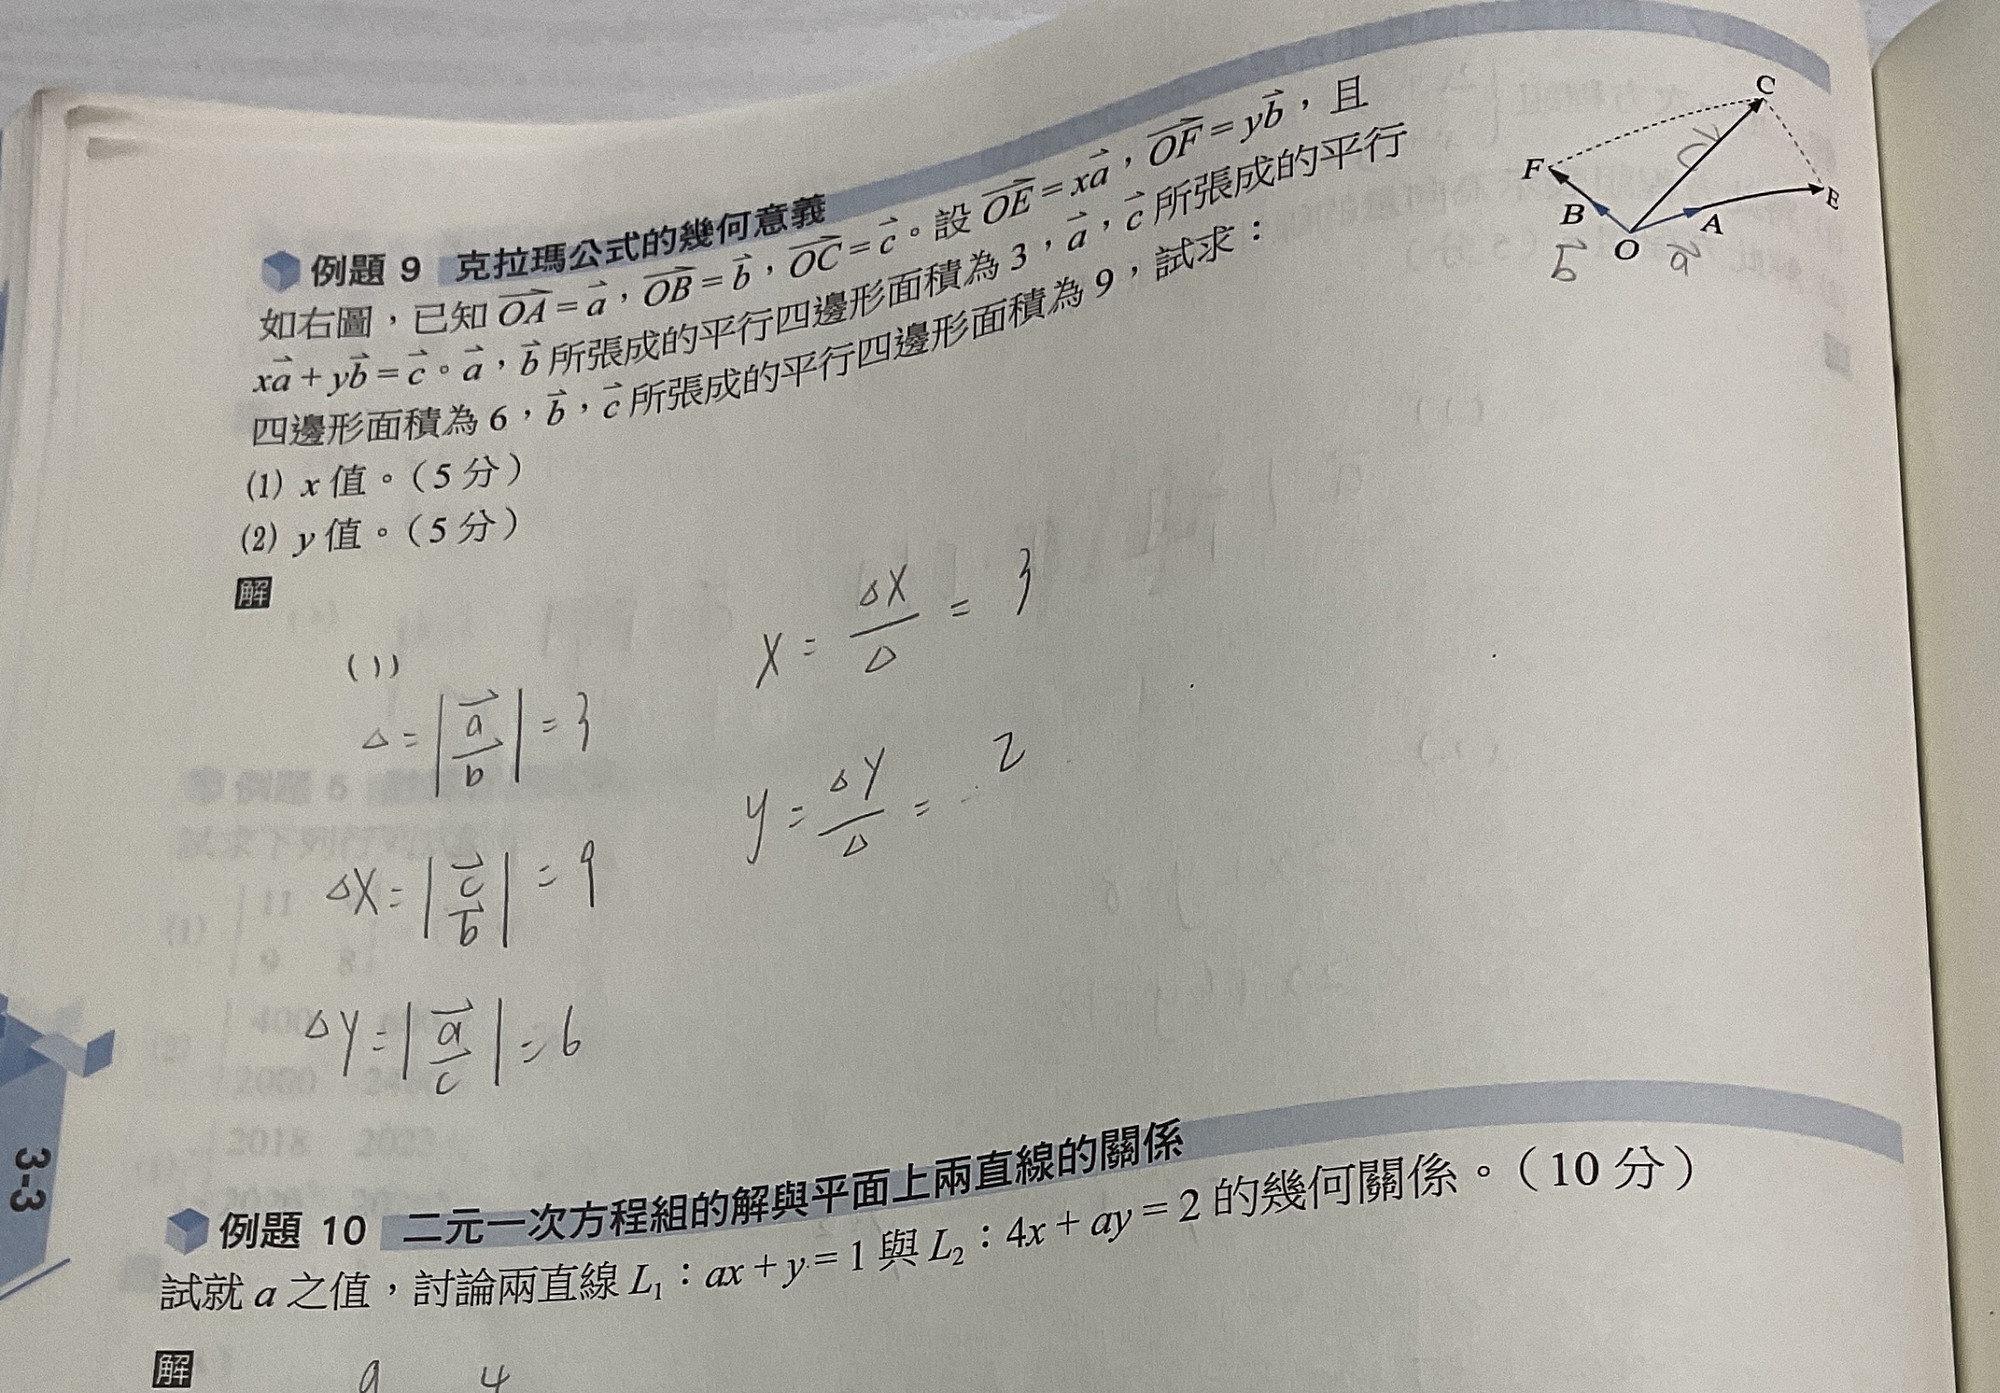 例題 9 克拉瑪公式的幾何意義
如右圖，已知 $\overrightarrow{OA}=\vec{a}$，$\overrightarrow{OB}=\vec{b}$，$\overrightarrow{OC}=\vec{c}$。設 $\overrightarrow{OE}=x\vec{a}$，$\overrightarrow{OF}=y\vec{b}$，且
$x\vec{a}+y\vec{b}=\vec{c}$。$\vec{a}$，$\vec{b}$ 所張成的平行四邊形面積為 3，$\vec{a}$，$\vec{c}$ 所張成的平行
四邊形面積為 6，$\vec{b}$，$\vec{c}$ 所張成的平行四邊形面積為 9，試求：
(1) x 值。（5 分）
(2) y 值。（5 分）
C
F
E
B
A
O
$\vec{b}$
$\vec{a}$
解
(1)
$\Delta=\left|\frac{\vec{a}}{\vec{b}}\right|=3$
$\Delta x=\left|\frac{\vec{c}}{\vec{b}}\right|=9$
$\Delta y=\left|\frac{\vec{a}}{\vec{c}}\right|=6$
$x=\frac{\Delta x}{\Delta}=3$
$y=\frac{\Delta y}{\Delta}=2$
3-3
例題 10 二元一次方程組的解與平面上兩直線的關係
試就 a 之值，討論兩直線 $L_1$：ax + y = 1 與 $L_2$：4x + ay = 2 的幾何關係。（10 分）
解